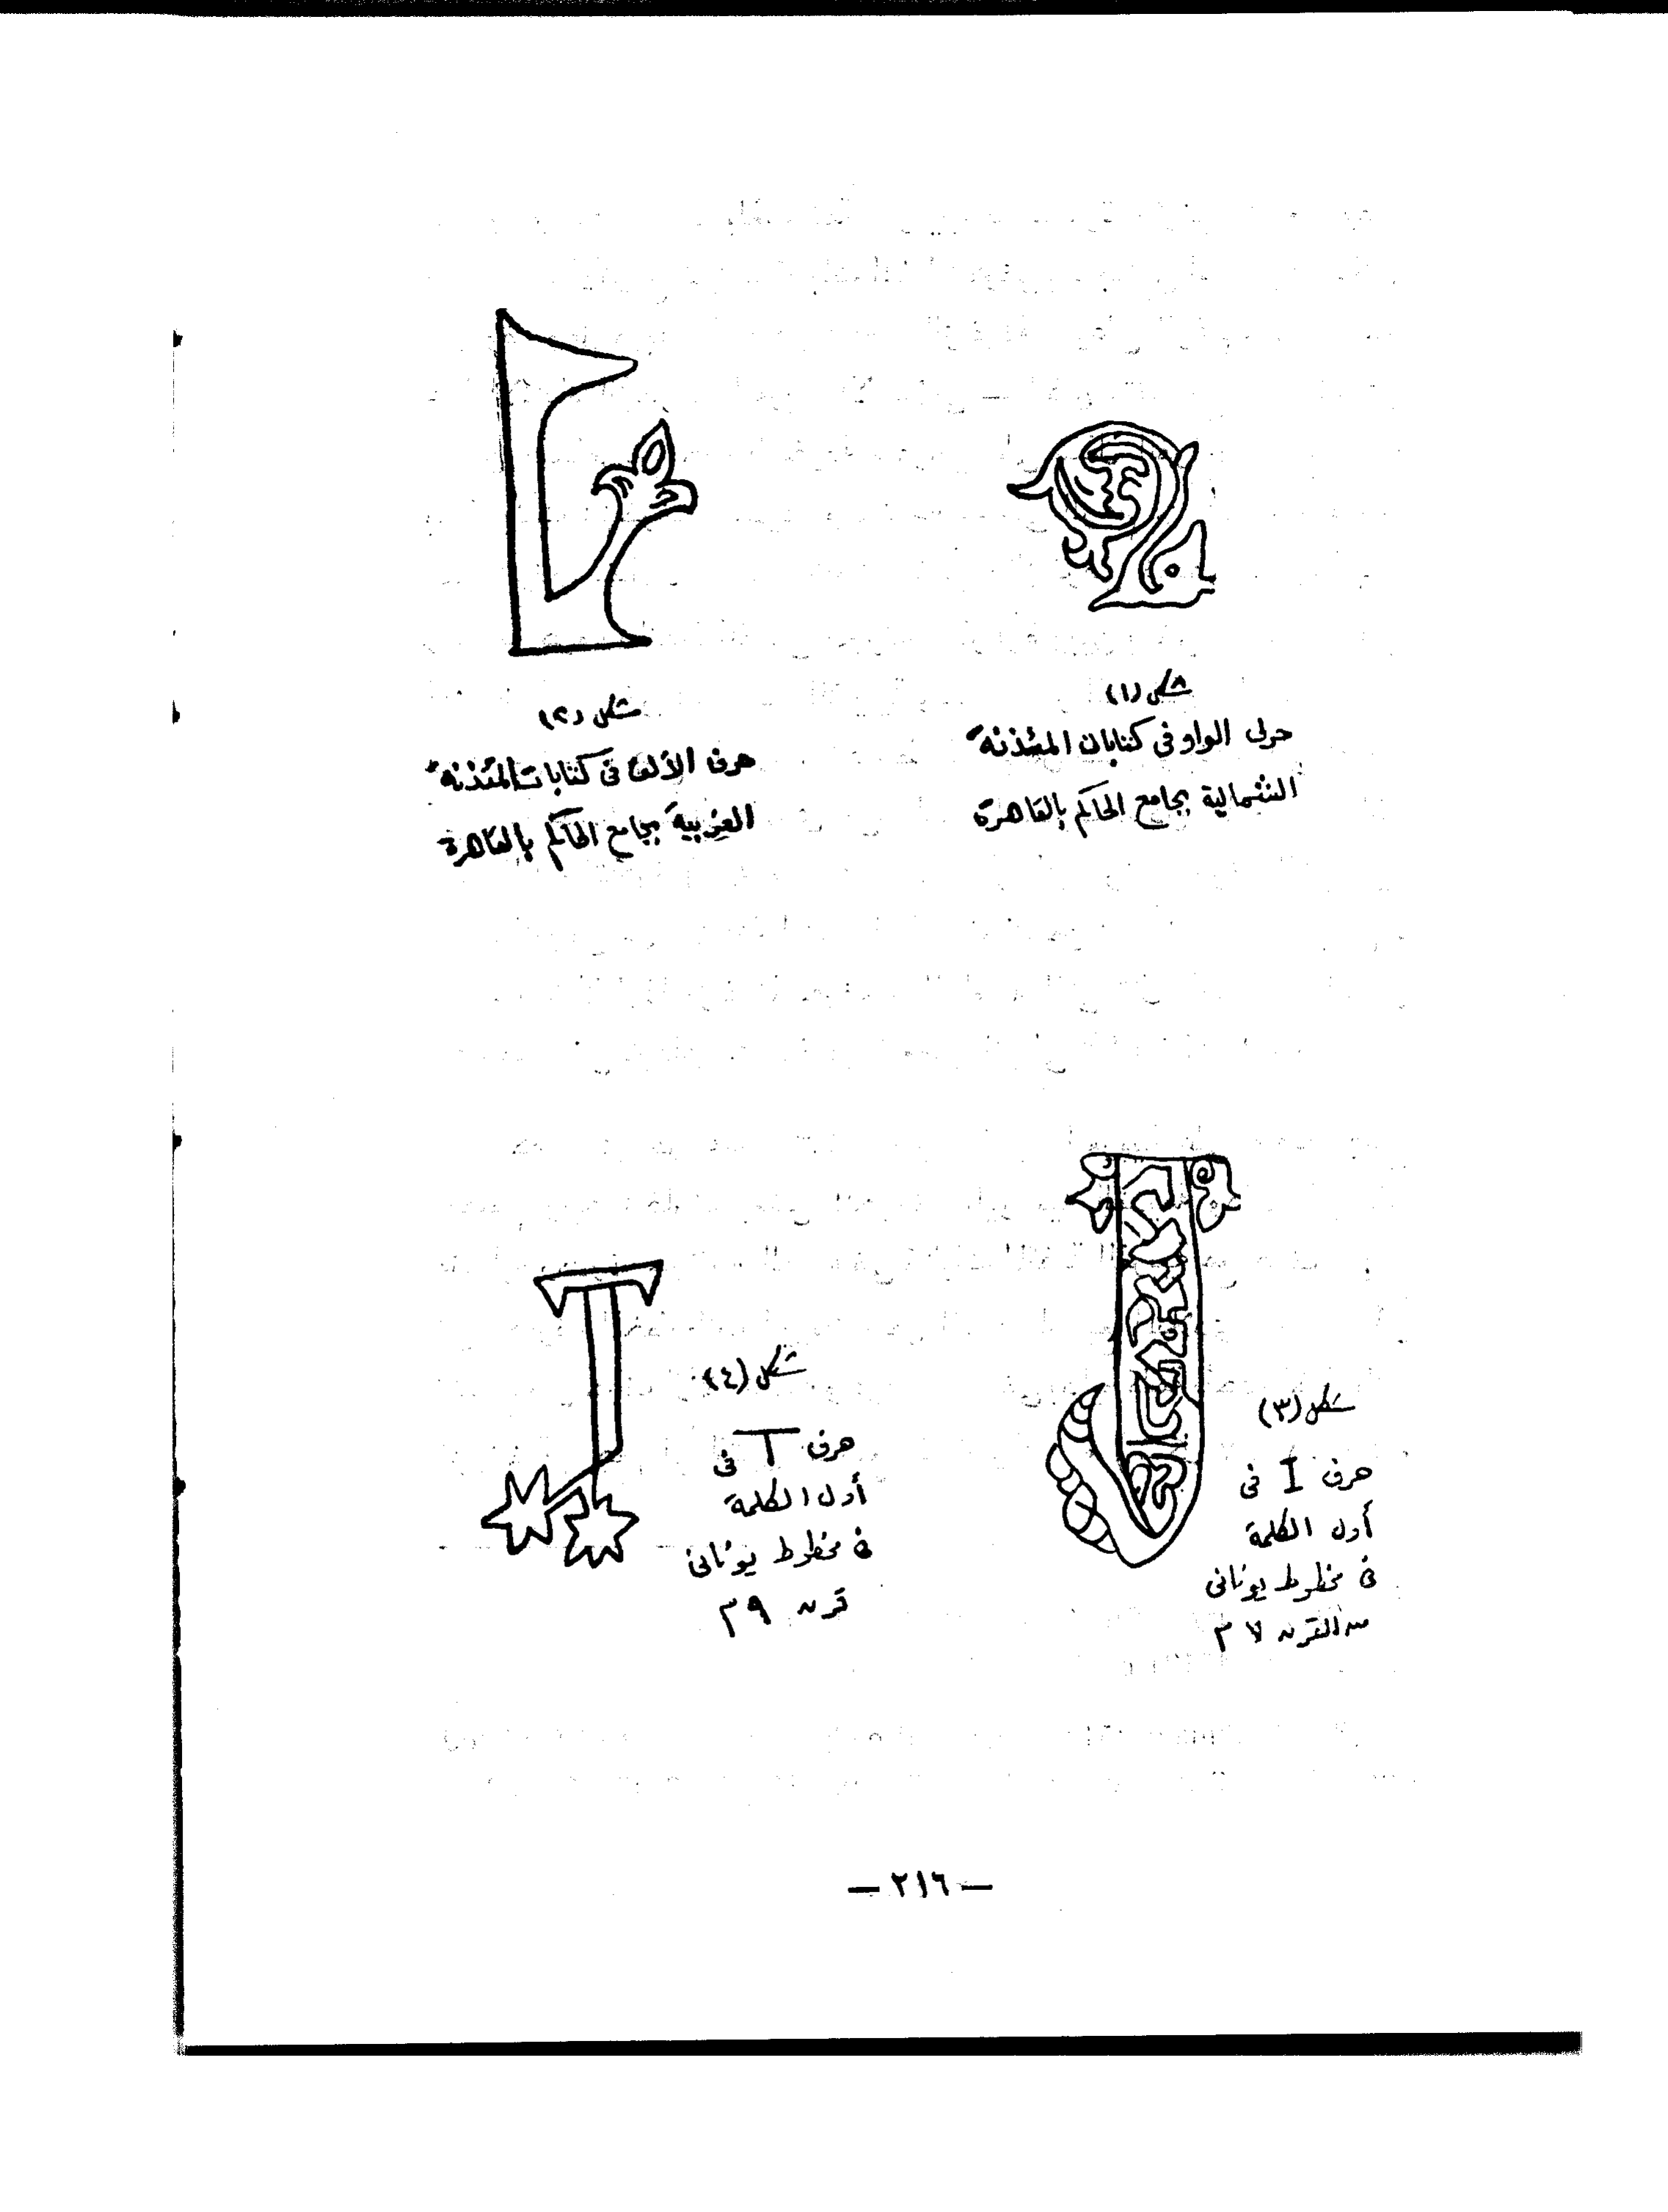 شكل (١)
حرف الواو فى كتابات المئذنة
الشمالية بجامع الحاكم بالقاهرة
شكل (٢)
حرف الألف فى كتابات المئذنة
الغربية بجامع الحاكم بالقاهرة
شكل (٣)
حرف I فى
أول الكلمة
فى مخطوط يونانى
من القرن ٧ م
شكل (٤)
حرف T فى
أول الكلمة
فى مخطوط يونانى
قرن ٩ م
— ٢١٦ —